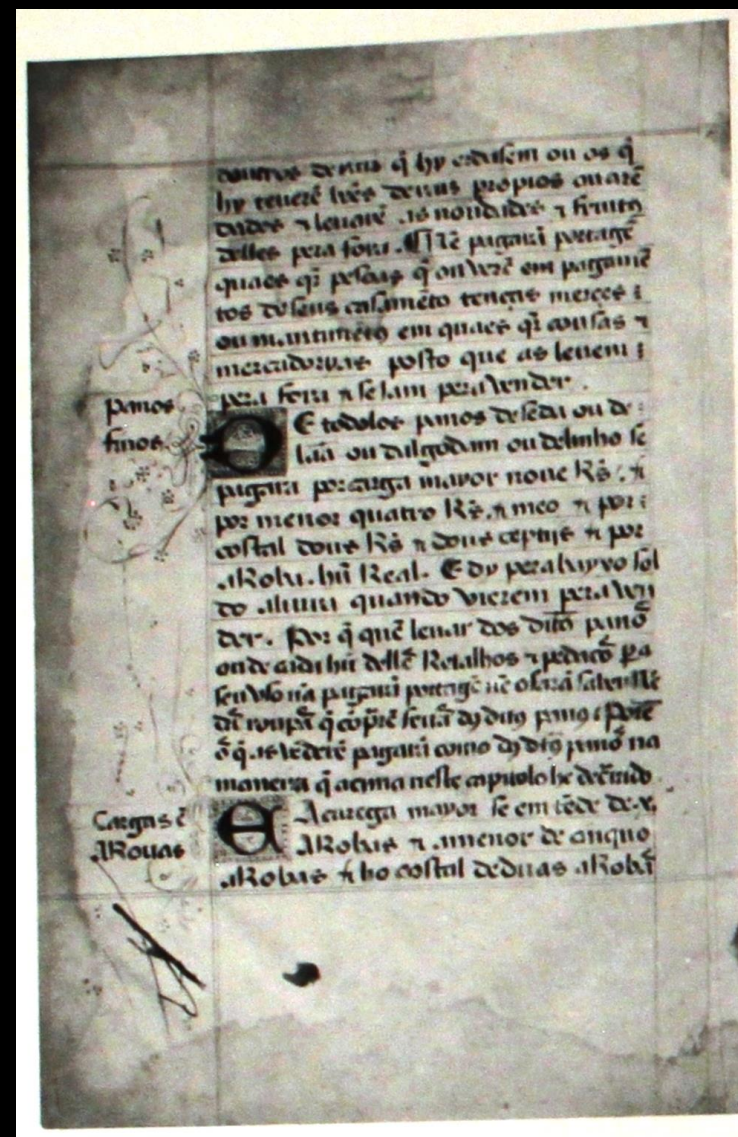 outros de nus q̃ hy ẽ ou os q̃
hy teuerẽ bẽs de nus propios ou arẽ
dados ⁊ leuarẽ as nouidades ⁊ fruitos
delles pera fora. Nẽ pagarã portagẽ
quaes q̃r pesoas q̃ ouverẽ em pagamẽ
tos de seus casamẽto tenças merçes
ou mantimẽtos em quaes q̃r cousas ⁊
mercadoryas posto que as leuem
pera fora ⁊ seJam pera vender.
panos
finos
DE todolos panos de seda ou de
laã ou dalgodam ou de linho se
pagara por carga mayor noue Rs̃. ⁊
por menor quatro Rs̃. ⁊ meo ⁊ por
costal dous Rs̃ ⁊ dous ceptijs ⁊ por
aRoba. hũ Real. E dy pera bayxo sol
do aliura quando vierem pera vẽ
der. Por q̃ quẽ leuar dos ditos panos
ou de cada hũ dellẽ Retalhos ⁊ pedaços pã
seu vso nã pagarã portagẽ nẽ o farã saber
da roupa q̃ cõprẽ feita dos ditos panos. Porẽ
os q̃ as vẽderẽ pagarã como dos ditos panos na
maneira q̃ acima neste capitulo he decrarado.
Cargas ẽ
aRouas
EA carrega mayor se emtẽde de.x.
aRobas ⁊ a menor de cinquo
aRobas ⁊ ho costal de duas aRobas